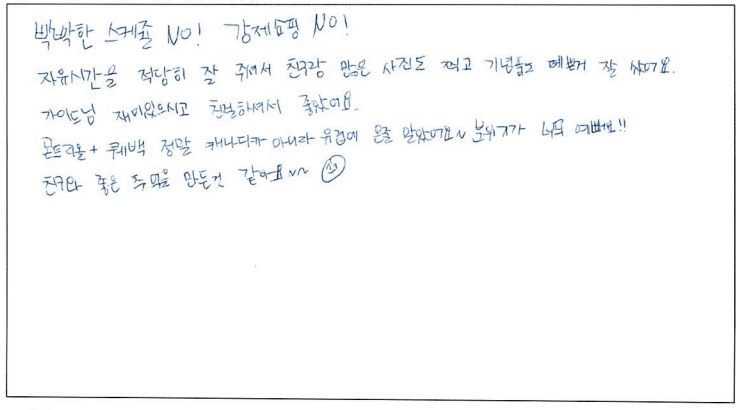 빡빡한 스케줄 NO! 강제쇼핑 NO!
자유시간을 적당히 잘 주셔서 친구랑 많은 사진도 찍고 기념품도 예쁜거 잘 샀어요.
가이드님 재미있으시고 친절하셔서 좋았어요.
몬트리올 + 퀘백 정말 캐나다가 아니라 유럽에 온줄 알았어요~ 분위기가 너무 예뻐요!!
친구와 좋은 추억을 만든것 같아요~~